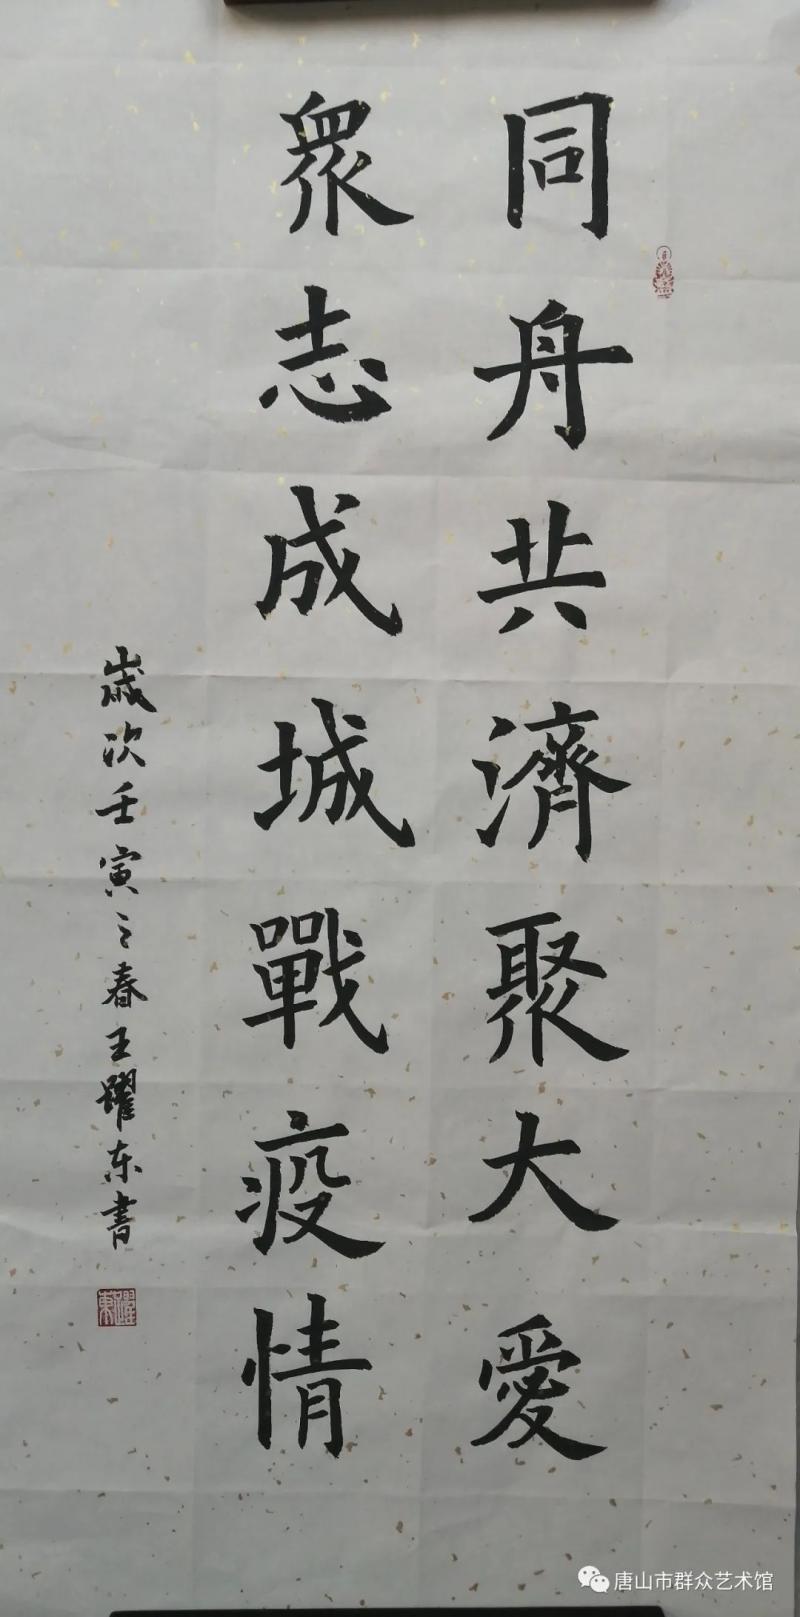 同舟共濟聚大愛
衆志成城戰疫情
歲次壬寅之春王躍東书
躍東
唐山市群众艺术馆